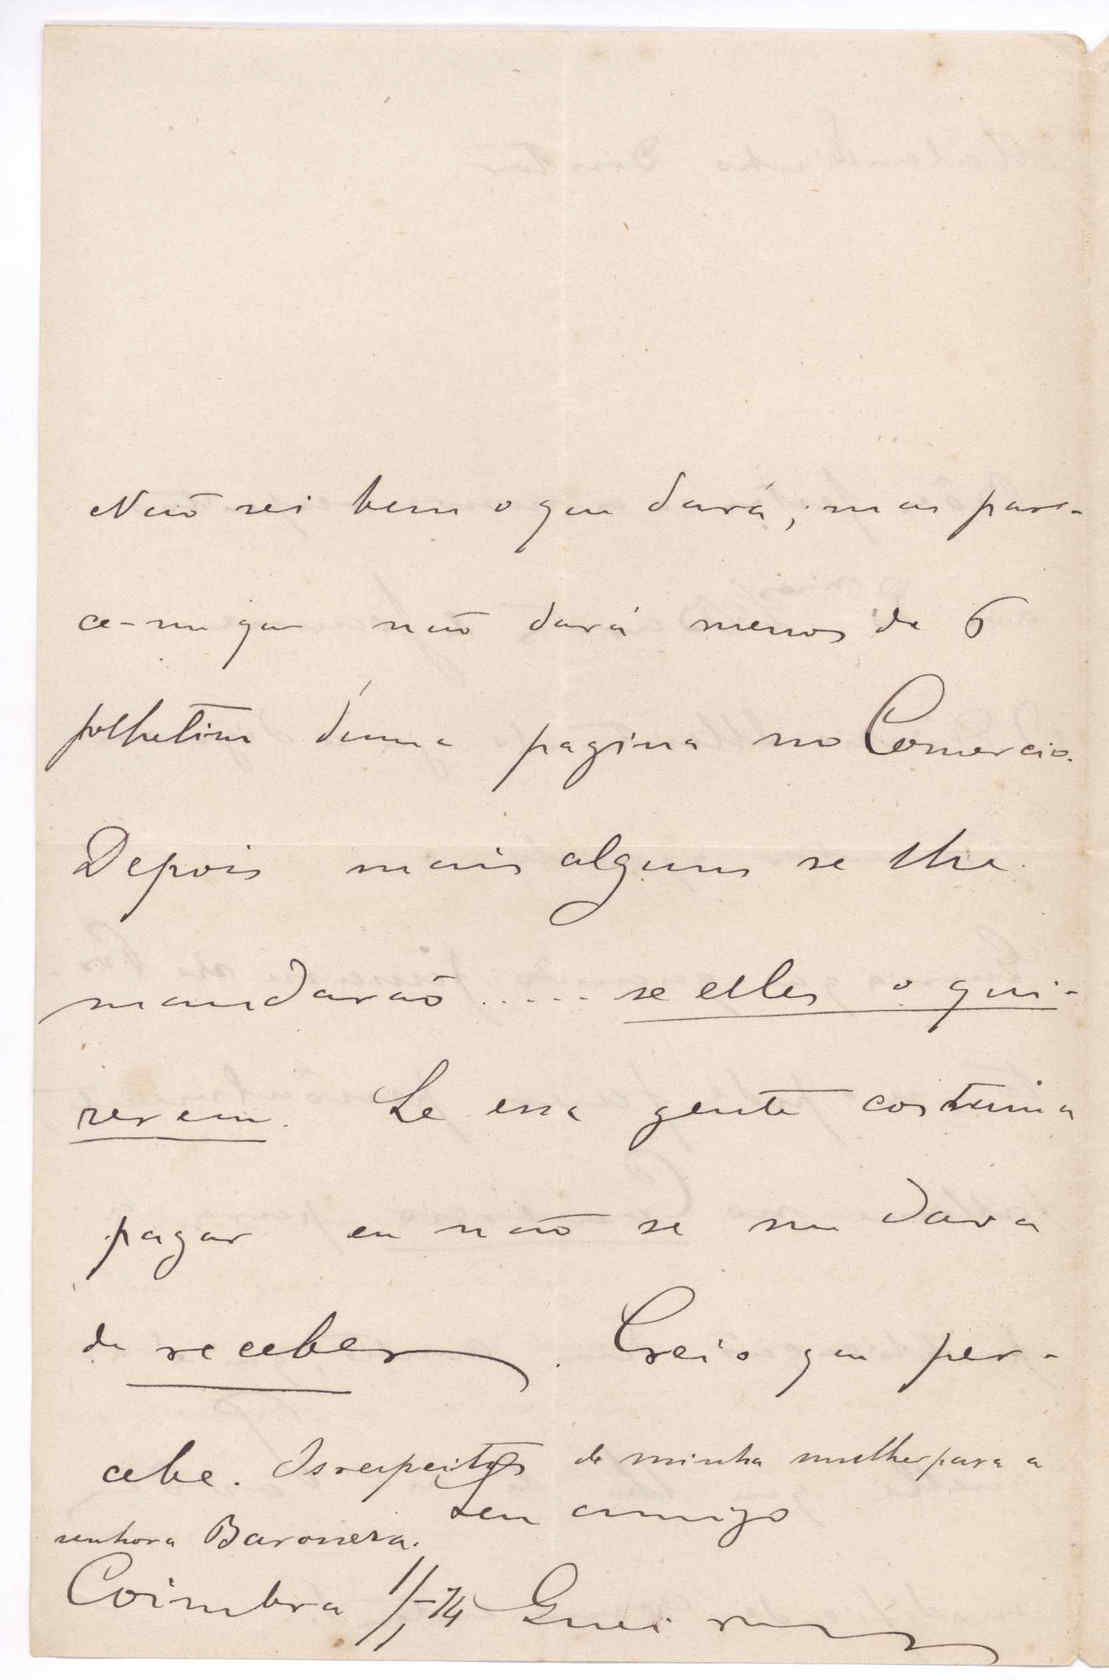 Não sei bem o que dará; mas pare-
ce-me que não dará menos de 6
folhetins d'uma pagina no Comercio.
Depois mais alguns se lhe
mandarão..... se elles o qui-
zerem. Se essa gente costuma
pagar eu não se me dava
de receber. Creio que per-
cebe. Os respeitos de minha mulher para a
senhora Baroneza.
Seu amigo
Coimbra 11/1-74